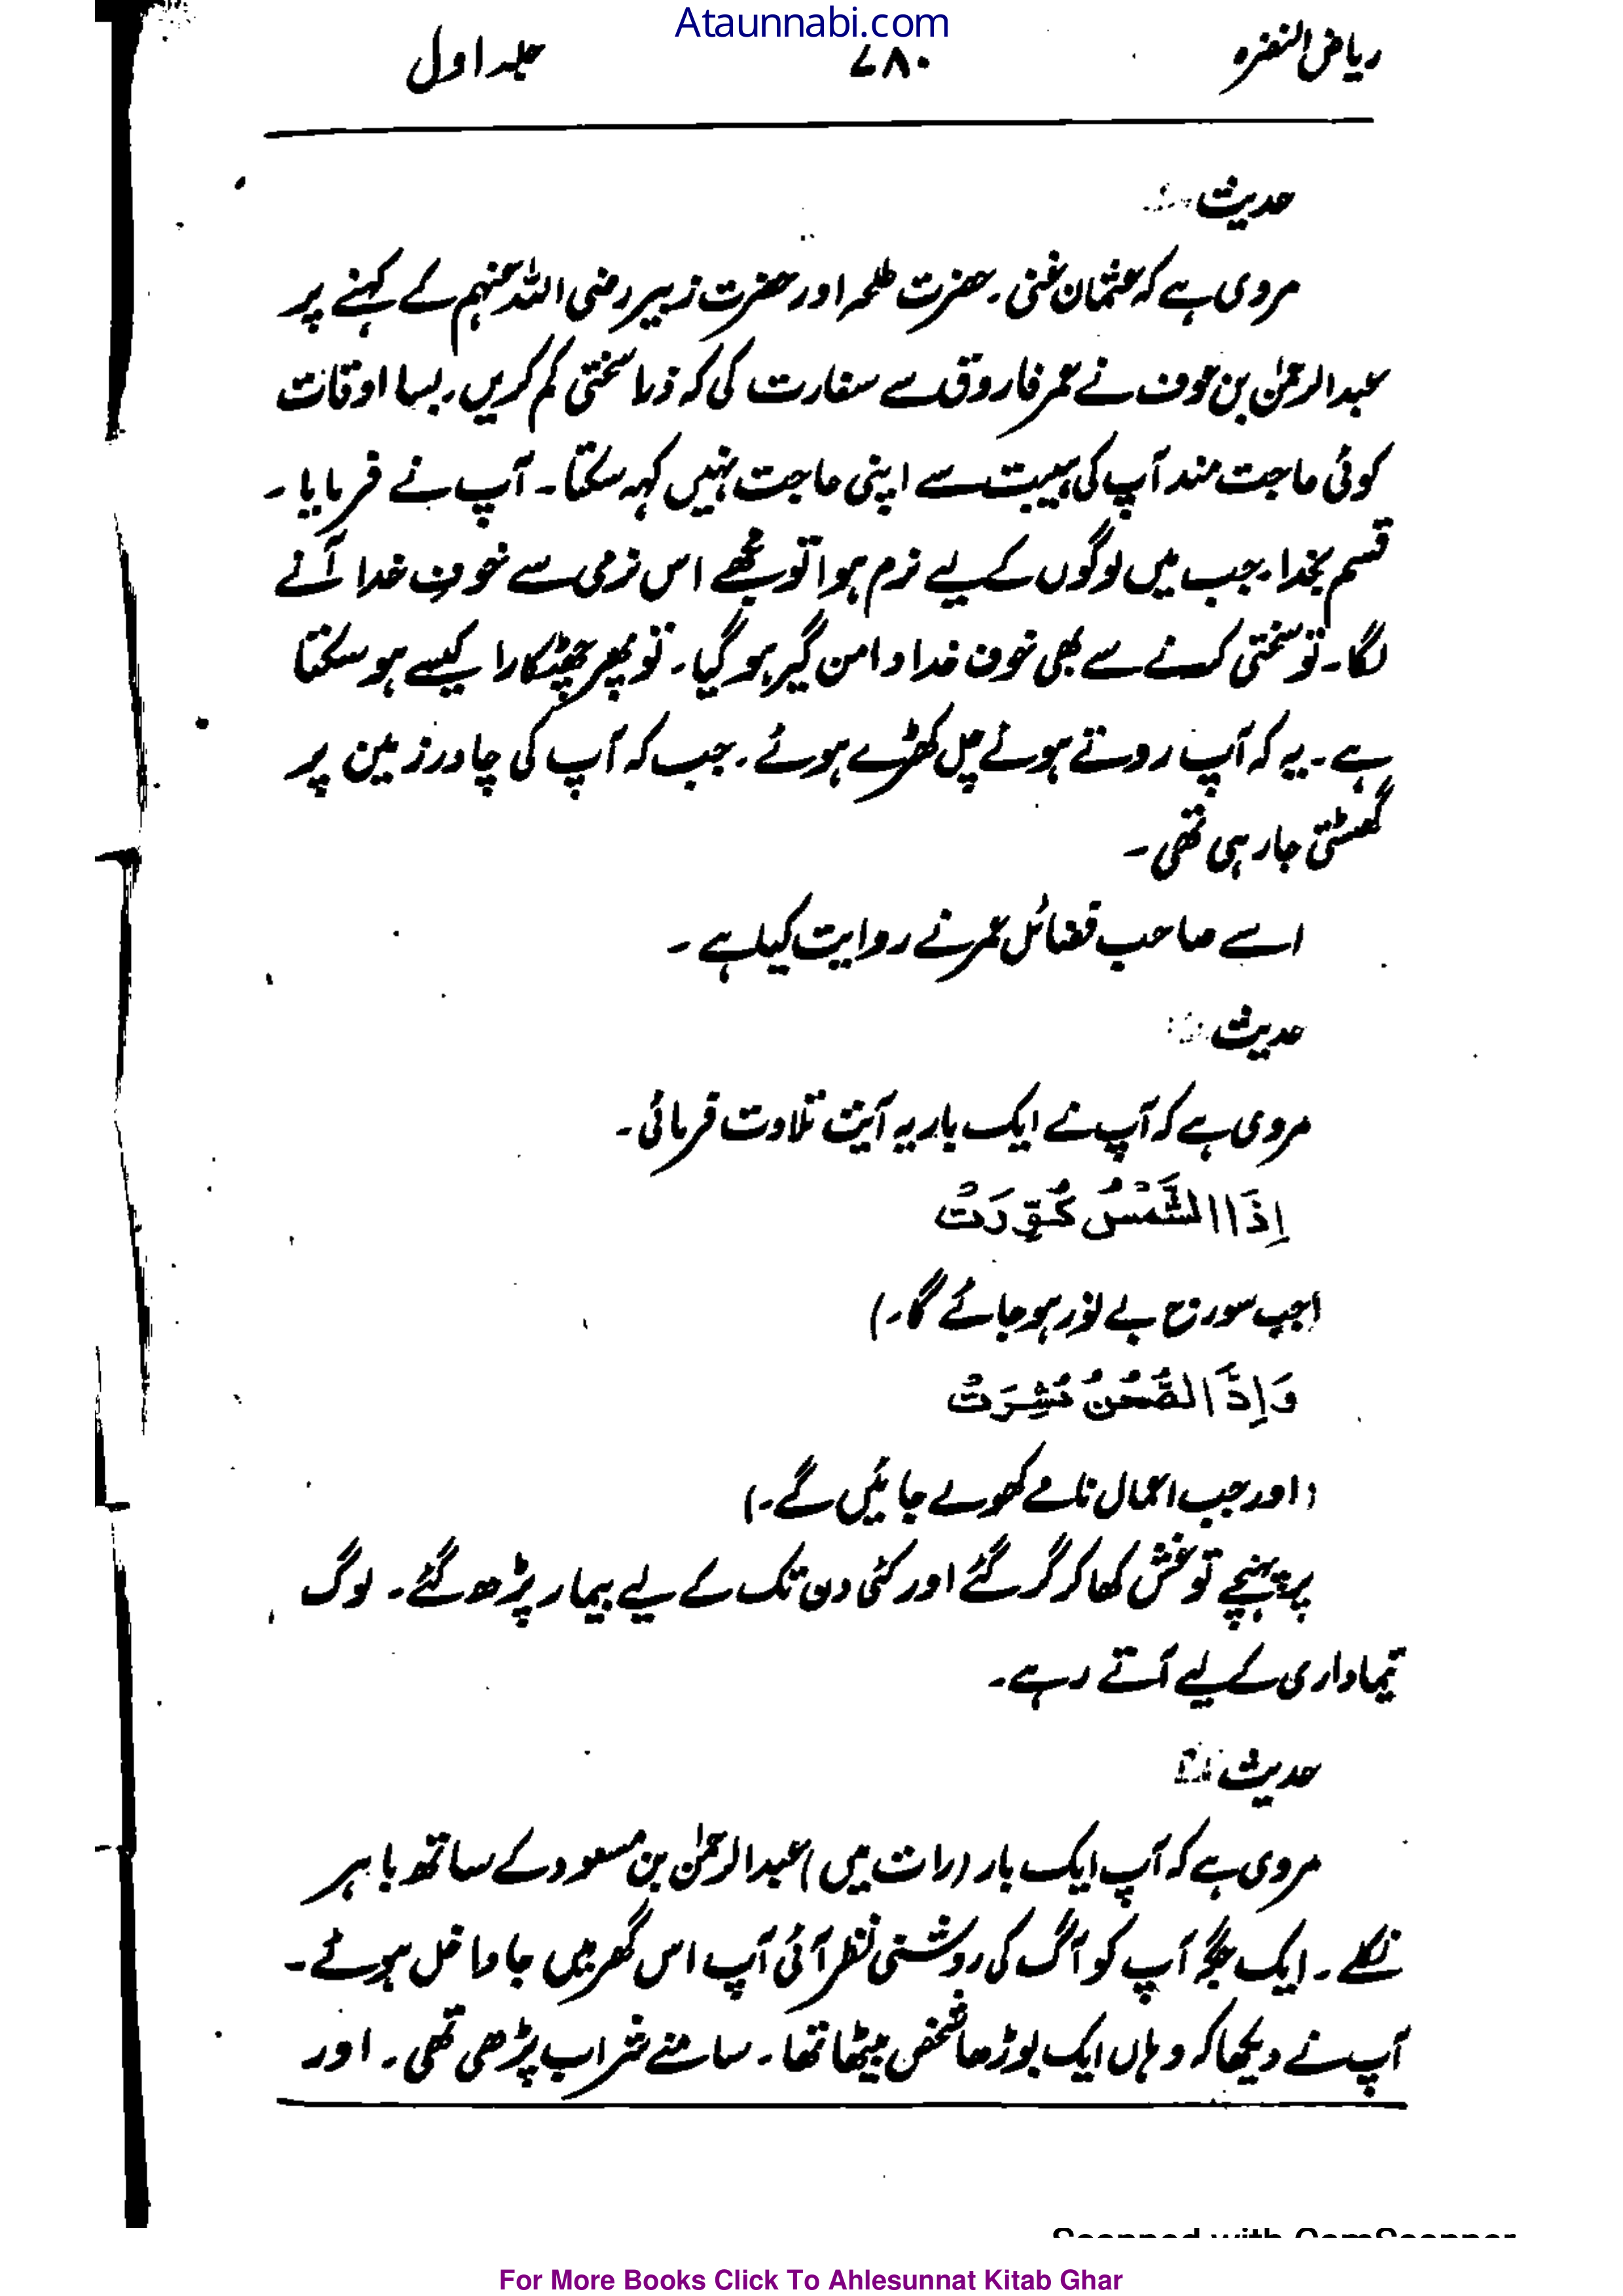 Ataunnabi.com
ریاض النضرہ ۷۸۰ جلد اول
حدیث
مروی ہے کہ عثمان غنی۔ حضرت طلحہ اور حضرت زبیر رضی اللہ عنہم کے کہنے پر
عبدالرحمٰن بن عوف نے عمر فاروق سے سفارت کی کہ ذرا سختی کم کریں۔ بسا اوقات
کوئی حاجت مند آپ کی ہیبت سے اپنی حاجت نہیں کہہ سکتا۔ آپ نے فرمایا۔
قسم بخدا۔ جب میں لوگوں کے لیے نرم ہوا تو مجھے اس نرمی سے خوفِ خدا آنے
لگا۔ تو سختی کرنے سے بھی خوف خدا دامن گیر ہو گیا۔ تو پھر چھٹکارا کیسے ہو سکتا
ہے۔ یہ کہ آپ روتے ہوئے چل کھڑے ہوئے۔ جب کہ آپ کی چادر زمین پر
گھسٹتی جا رہی تھی۔
اسے صاحب فضائل عمر نے روایت کیا ہے۔
حدیث
مروی ہے کہ آپ نے ایک بار یہ آیت تلاوت فرمائی۔
اِذَا الشَّمْسُ كُوِّرَتْ
(جب سورج بے نور ہو جائے گا۔)
وَاِذَا الصُّحُفُ نُشِرَتْ
(اور جب اعمال نامے کھولے جائیں گے۔)
پر پہنچے تو غش کھا کر گر گئے اور کئی دن تک کے لیے بیمار پڑھ گئے۔ لوگ
تیماداری کے لیے آتے رہے۔
حدیث
مروی ہے کہ آپ ایک بار (رات میں) عبدالرحمٰن بن مسعود کے ساتھ باہر
نکلے۔ ایک جگہ آپ کو آگ کی روشنی نظر آئی آپ اس گھر میں جا داخل ہوئے۔
آپ نے دیکھا کہ وہاں ایک بوڑھا شخص بیٹھا تھا۔ سامنے شراب پڑھی تھی۔ اور
Scanned with CamScanner
For More Books Click To Ahlesunnat Kitab Ghar